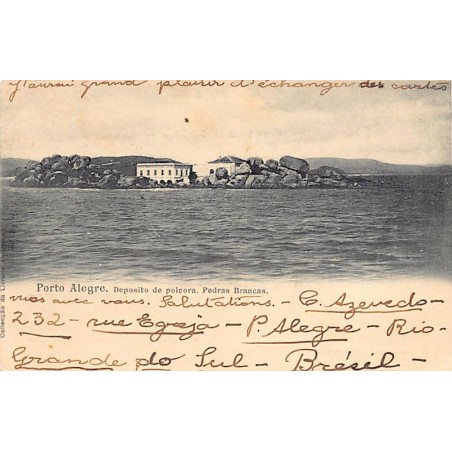 J'aurai grand plaisir d'échanger des cartes
Porto Alegre. Deposito de polvora. Pedras Brancas.
vues avec vous. Salutations. - C. Azevedo -
232 - rue Egreja - P. Alegre - Rio -
Grande do Sul - Brésil -
Collecção da